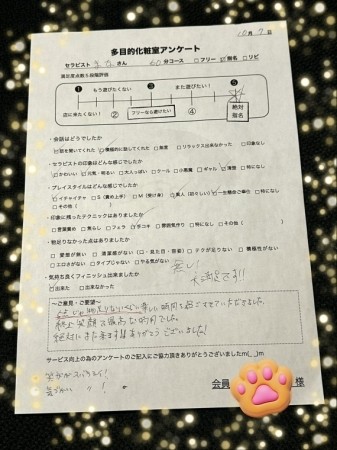 10月7日
多目的化粧室アンケート
セラピスト さん 60分コース □フリー ☑指名 □リピ
満足度点数5段階評価
❶ もう遊びたくない! ❸ また遊びたい! ❺
店に来たくない! ② フリーなら遊びたい ④ 絶対指名
・会話はどうでしたか
☑話を聞いてくれた ☑積極的に話してくれた □無言 □リラックス出来なかった □印象なし
・セラピストの印象はどんな感じでしたか
☑かわいい ☑元気・明るい □大人っぽい □クール □小悪魔 □ギャル ☑清楚 □特になし
・プレイスタイルはどんな感じでしたか
☑イチャイチャ □S(責め上手) □M(受け身) ☑素人(初々しい) ☑一生懸命ご奉仕 □特になし
□その他( )
・印象に残ったテクニックはありましたか
□言葉責め □焦らし □フェラ □手コキ □雰囲気作り □特になし □その他( )
・物足りなかった点はありましたか
□愛想が無い □清潔感がない(口・見た目・容姿) □テクが足りない □積極性がない
□エロさがない □タイプじゃない □やる気がない
無し!
・気持ち良くフィニッシュ出来ましたか
☑出来た □出来なかった
大満足です!!
～ご意見・ご要望～
時間を過ごさせていただきました。
終止笑顔で最高な時間でした。
絶対にまた来ます!!ありがとうございました!
サービス向上の為のアンケートのご記入にご協力頂きありがとうございましたm(__)m
笑顔が
気づかい 〃 !
会員 様